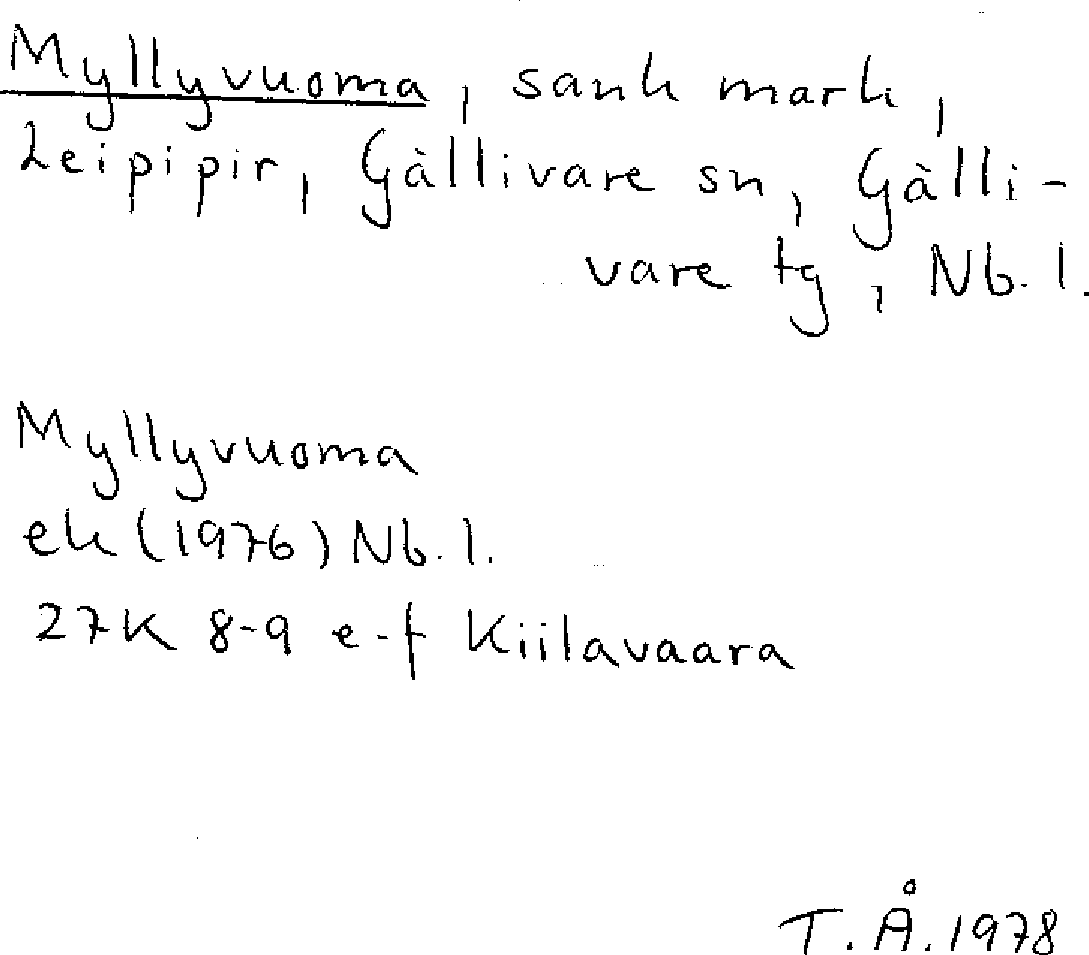 Myllyvuoma, sank mark,
Leipipir, Gällivare sn, Gälli-
vare tg, Nb. l.
Myllyvuoma
ek (1976) Nb. l.
27K 8-9 e-f Kiilavaara
T. Å. 1978